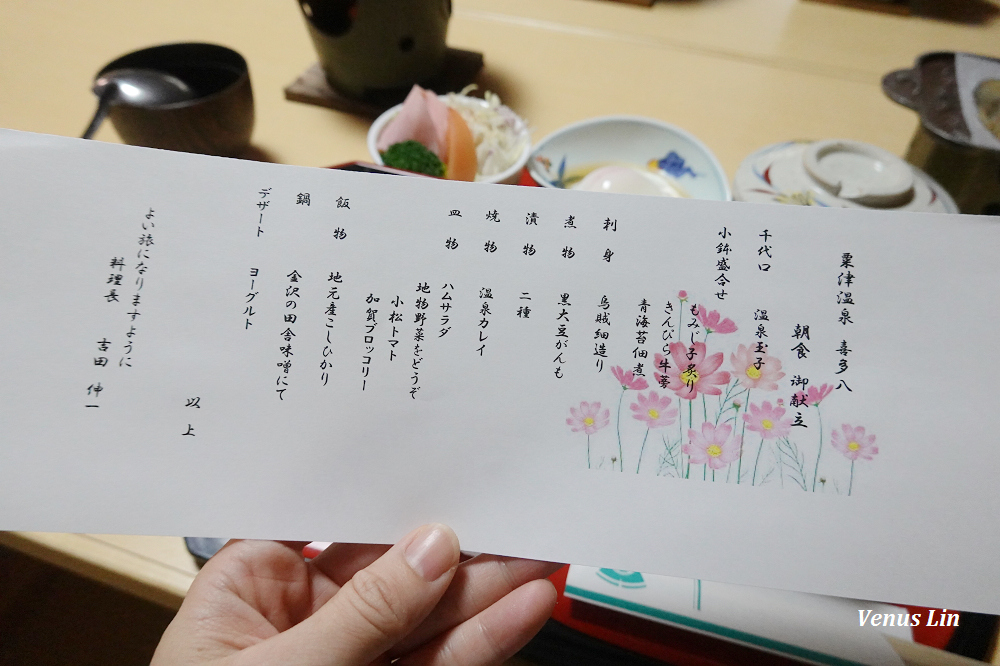 粟津温泉 喜多八
朝食 御献立
千代口 温泉玉子
小鉢盛合せ
もみじ子炙り
きんぴら牛蒡
青海苔佃煮
刺身 烏賊細造り
煮物 黒大豆がんも
漬物 二種
焼物 温泉カレイ
皿物 ハムサラダ
地物野菜をどうぞ
小松トマト
加賀ブロッコリー
飯物 地元産こしひかり
鍋 金沢の田舎味噌にて
デザート ヨーグルト
以上
よい旅になりますように
料理長 吉田 伸一
Venus Lin